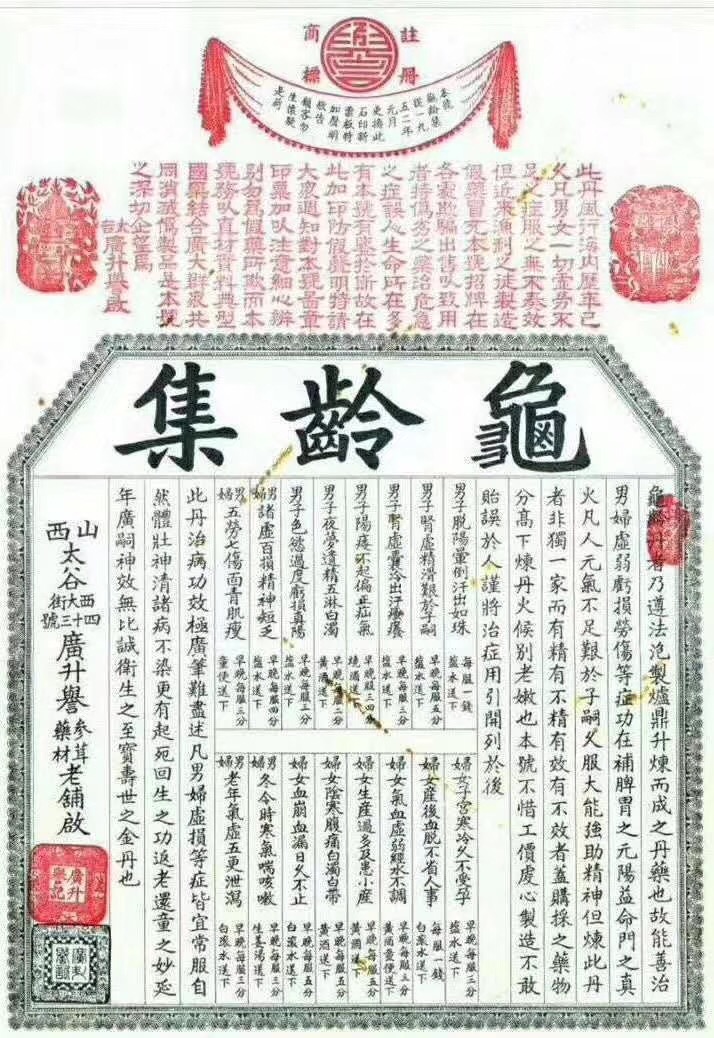 註冊
商標
本號
龜齡集
從一九
五二年
元月
更換此
石印新
票敬特
加聲明
敬告
顧客勿
生懷疑
是荷
此丹風行海內歷年已
久凡男女一切虛勞不
足之症服之無不奏效
但近來漁利之徒製造
假藥冒充本號招牌在
各處欺騙出售以致用
者持偽劣之藥治危急
之症誤人生命所在多
有本號有鑒於斯故在
此加印防假聲明特請
大家週知對本號圖章
印票加以注意細心辨
別勿為假藥所欺而本
號務以真材實料典型
國藥結合廣大群眾共
同消滅偽製品是本號
之深切企望焉
太谷廣升譽啟
龜齡集
龜齡丹者乃遵法炮製爐鼎升煉而成之丹藥也故能善治
男婦虛弱虧損勞傷等症功在補脾胃之元陽益命門之真
火凡人元氣不足艱於子嗣久服大能強助精神但煉此丹
者非獨一家而有精有不精有效有不效者蓋購採之藥物
分高下煉丹火候別老嫩也本號不惜工價虔心製造不敢
貽誤於人謹將治症用引開列於後
男子脫陽暈倒汗出如珠 每服一錢 鹽水送下
男子腎虛精滑艱於子嗣 早晚每服五分 鹽水送下
男子腎虛囊冷出汗燥癢 早晚每服三分 鹽水送下
男子陽痿不起偏正疝氣 早晚服三四分 燒酒送下
男子夜夢遺精五淋白濁 早晚每服三分 黃酒送下
男子色慾過度虧損真陽 早晚每服三分 鹽水送下
男婦諸虛百損精神短乏 早晚每服四分 鹽水送下
男婦五勞七傷面青肌瘦 早晚每服三分 童便送下
婦女子宮寒冷久不受孕 早晚每服三分 鹽水送下
婦女產後血脫不省人事 每服一錢 白滾水送下
婦女氣血虛弱經水不調 早晚每服三分 黃酒童便送下
婦女生產過多及患小產 早晚每服五分 黃酒送下
婦女陰寒腹痛白濁白帶 早晚每服五分 黃酒送下
婦女血崩血漏日久不止 早晚每服五分 白滾水送下
男婦冬令時寒氣喘咳嗽 早晚每服三分 生姜湯送下
男婦老年氣虛五更泄瀉 早晚每服三分 白滾水送下
此丹治病功效極廣筆難盡述凡男婦虛損等症皆宜常服自
然體壯神清諸病不染更有起死回生之功返老還童之妙延
年廣嗣神效無比誠衛生之至寶壽世之金丹也
山西太谷西大街四十三號廣升譽參茸藥材老舖啟
廣升譽記